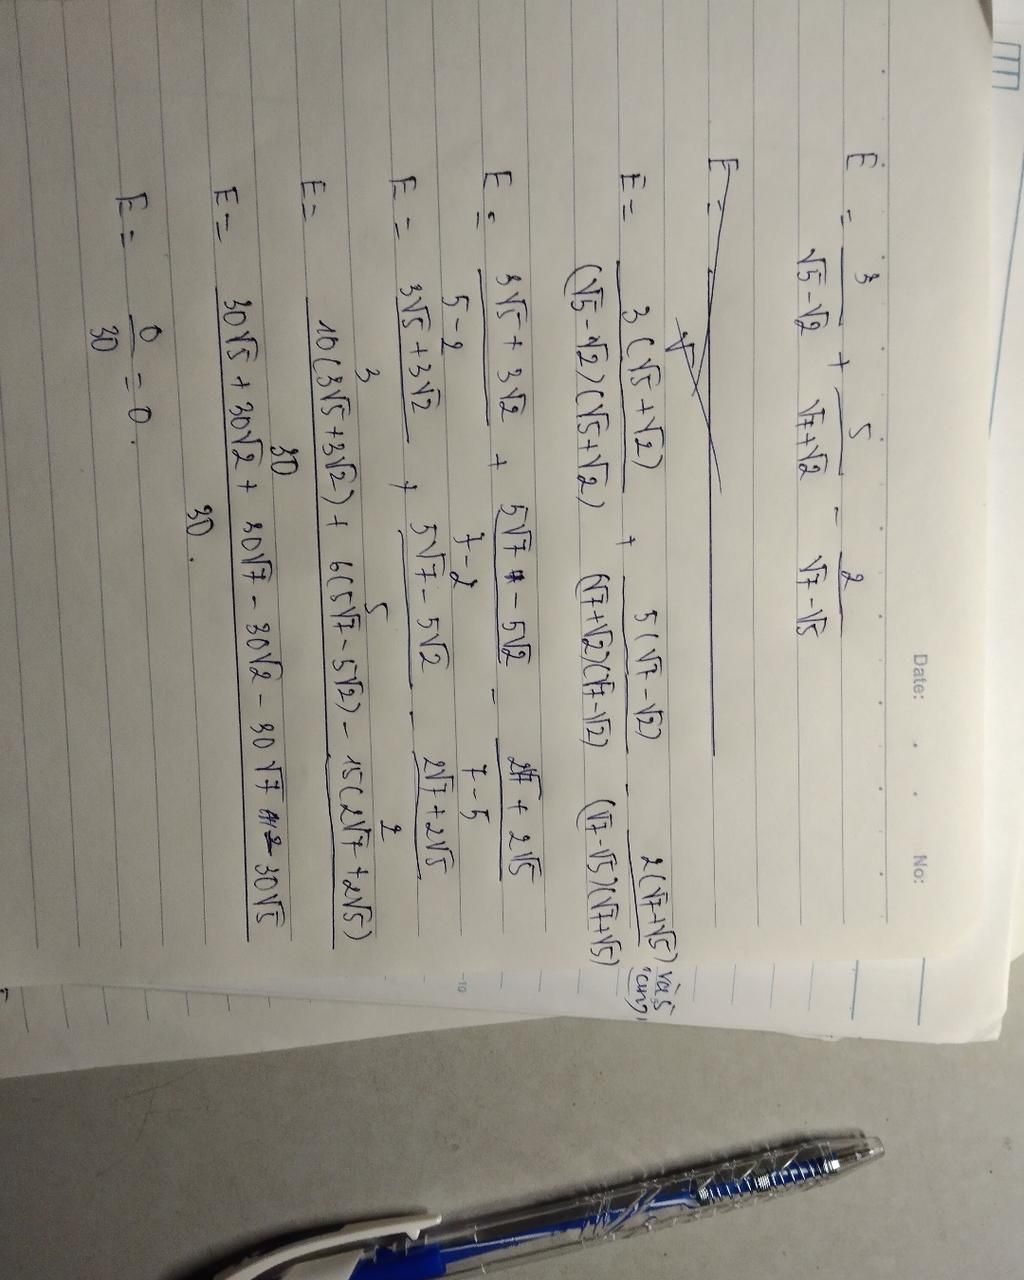 Date: No:
E = 3/(√5-√2) + 5/(√7+√2) - 2/(√7-√5)
E =
E = 3(√5+√2)/((√5-√2)(√5+√2)) + 5(√7-√2)/((√7+√2)(√7-√2)) - 2(√7+√5)/((√7-√5)(√7+√5))
E = (3√5+3√2)/(5-2) + (5√7-5√2)/(7-2) - (2√7+2√5)/(7-5)
E = (3√5+3√2)/3 + (5√7-5√2)/5 - (2√7+2√5)/2
E = (10(3√5+3√2) + 6(5√7-5√2) - 15(2√7+2√5))/30
E = (30√5+30√2+30√7-30√2-30√7-30√5)/30.
E = 0/30 = 0.